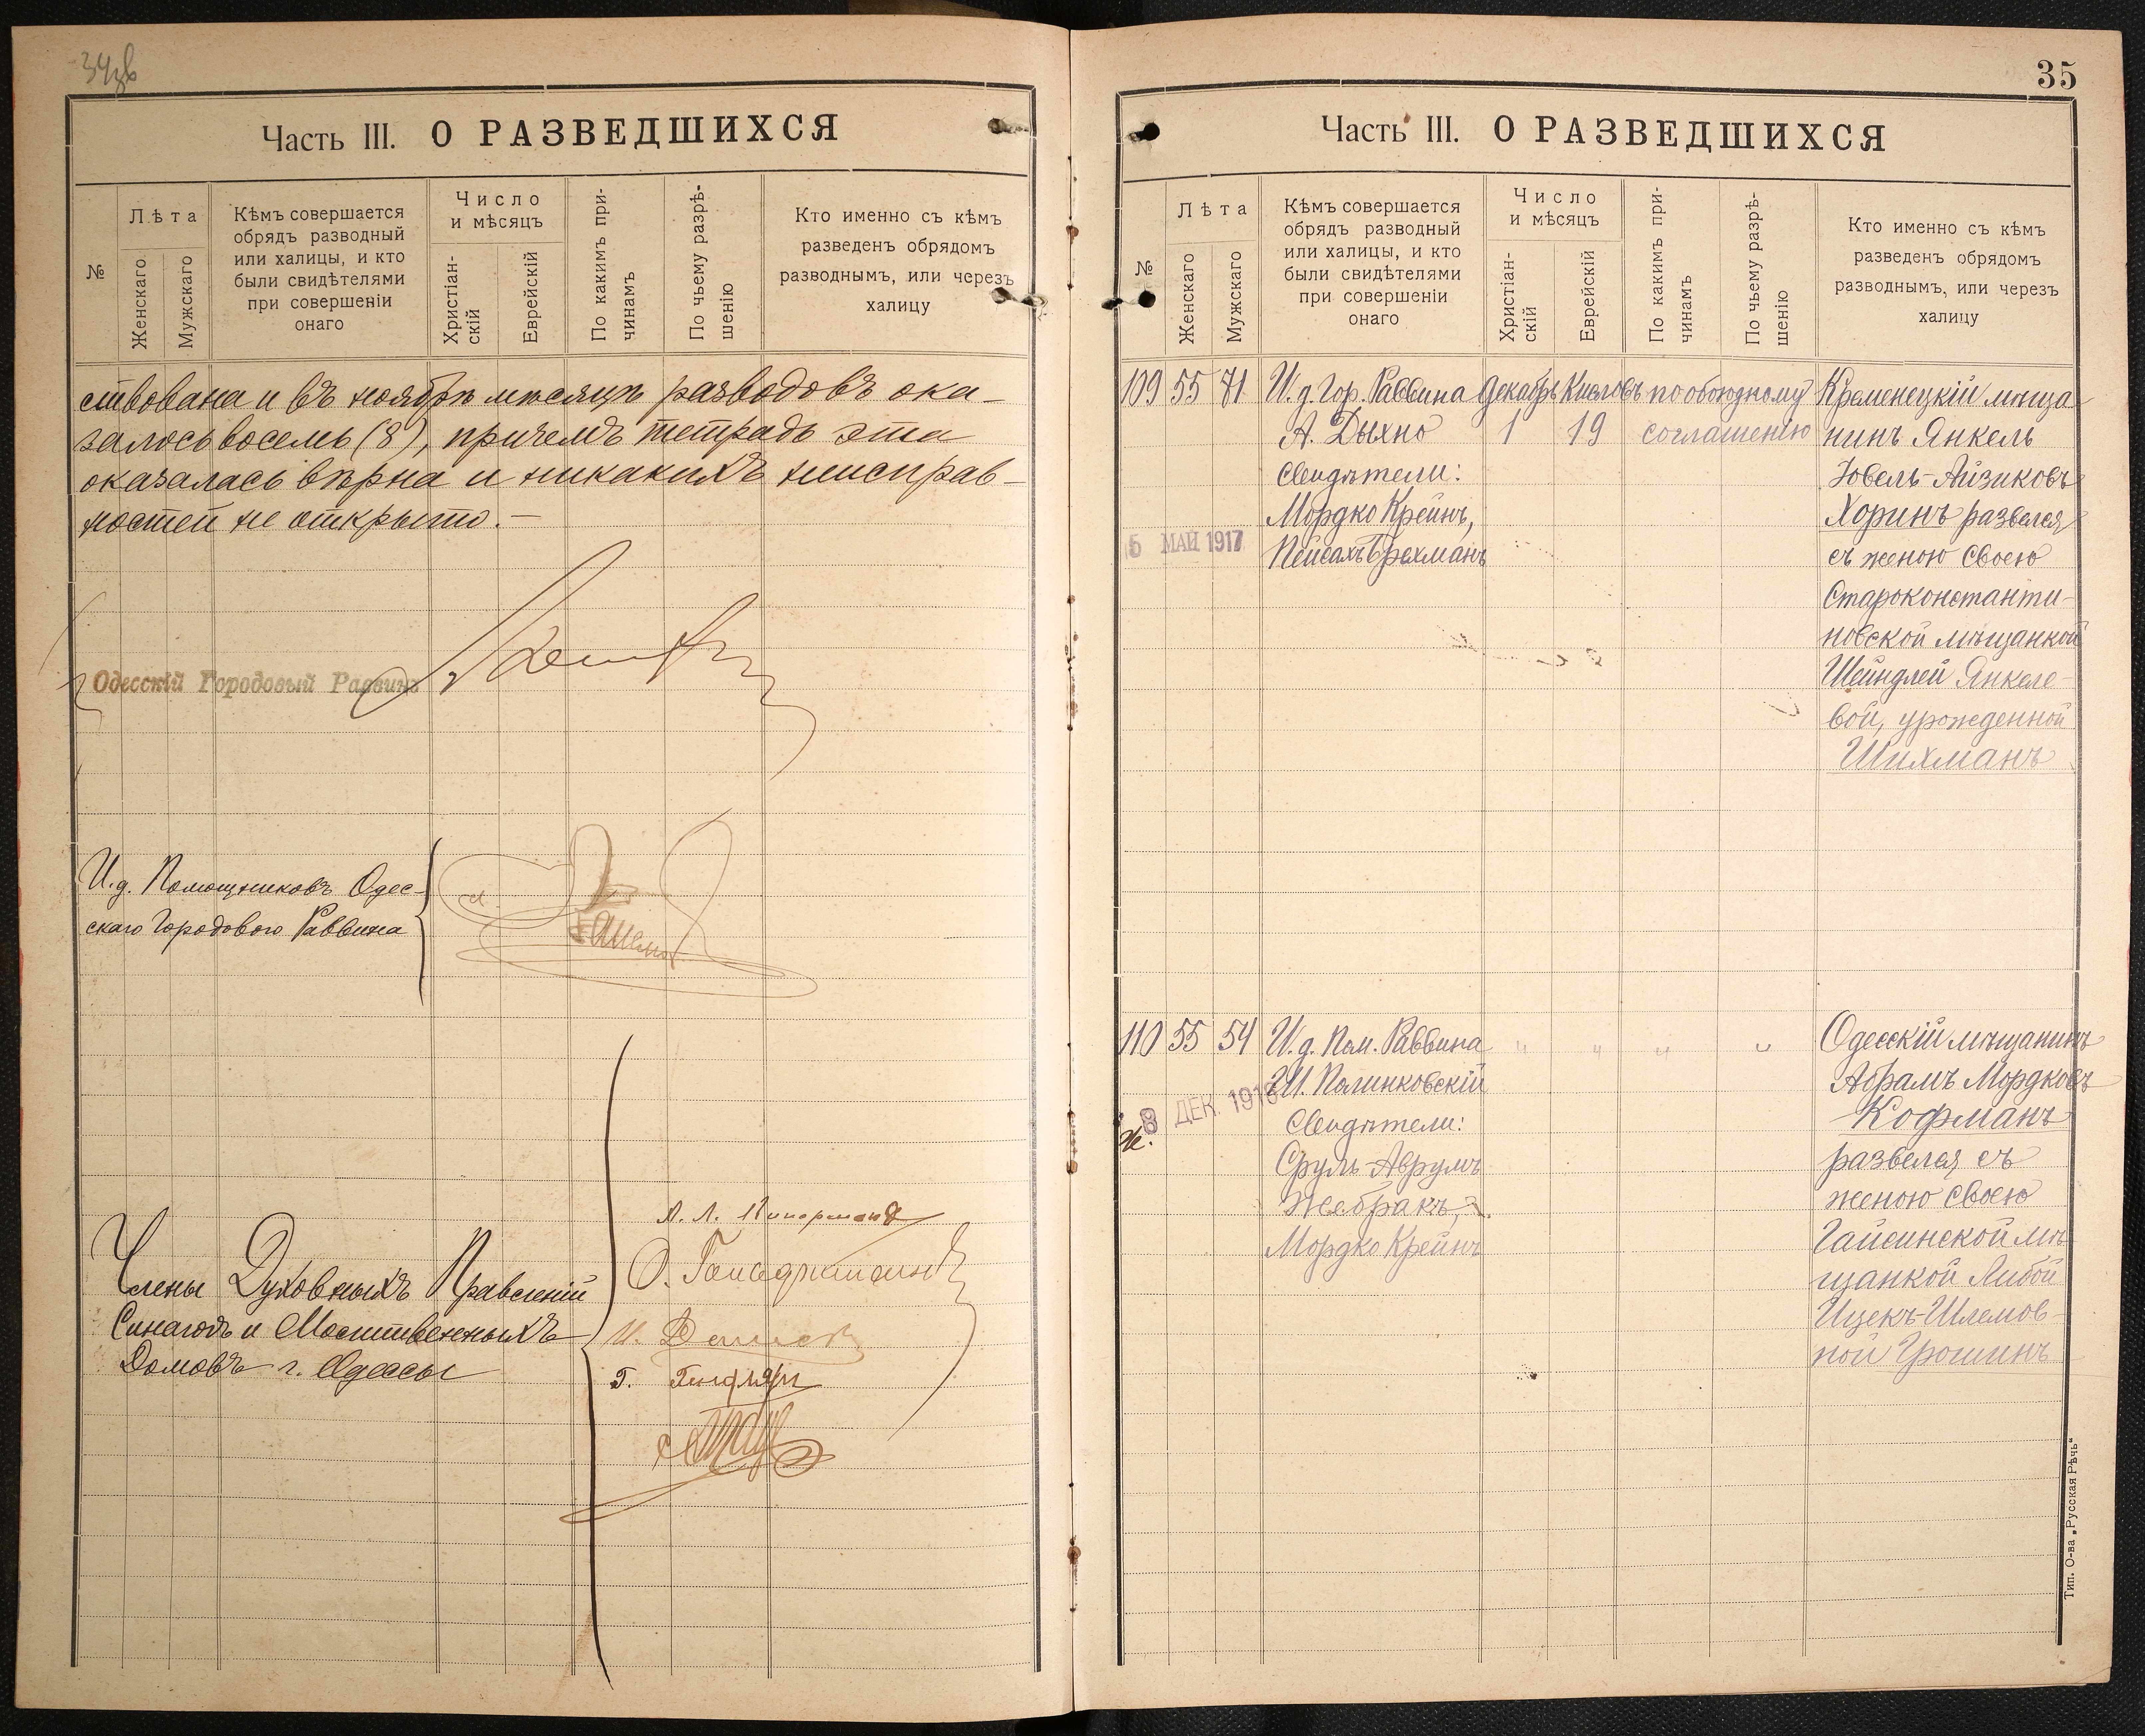 34зв
Часть III. О РАЗВЕДШИХСЯ
№
Лѣта
Женскаго
Мужскаго
Кѣмъ совершается
обрядъ разводный
или халицы, и кто
были свидѣтелями
при совершеніи
онаго
Число
и мѣсяцъ
Христіан-
скій
Еврейскій
По какимъ при-
чинамъ
По чьему разрѣ-
шенію
Кто именно съ кѣмъ
разведенъ обрядомъ
разводнымъ, или черезъ
халицу
ствована и въ ноябрѣ мѣсяцѣ разводовъ ока-
залось восемь (8), причемъ тетрадь эта
оказалась вѣрна и никакихъ неисправ-
ностей не открыто.-
Одесскій Городовый Раввинъ
И.д. Помощниковъ Одес-
скаго Городового Раввина
Члены Духовныхъ Правленій
Синагогъ и Молитвенныхъ
Домовъ г. Одессы
35
Часть III. О РАЗВЕДШИХСЯ
№
Лѣта
Женскаго
Мужскаго
Кѣмъ совершается
обрядъ разводный
или халицы, и кто
были свидѣтелями
при совершеніи
онаго
Число
и мѣсяцъ
Христіан-
скій
Еврейскій
По какимъ при-
чинамъ
По чьему разрѣ-
шенію
Кто именно съ кѣмъ
разведенъ обрядомъ
разводнымъ, или черезъ
халицу
109 55 71 И.д. Гор. Раввина Декабрь Кислевъ по обоюдному Кременецкій мѣща-
А. Дыхно 1 19 соглашенію нинъ Янкель
Свидѣтели: Ювель-Айзиковъ
Мордко Крейнъ, Хоринъ развелся
5 МАЙ 1917 Пейсахъ Брехманъ съ женою своею
Староконстанти-
новской мѣщанкой
Шейндлей Янкеле-
вой, урожденной
Шихманъ
110 55 54 И.д. Пом. Раввина " " " " Одесскій мѣщанинъ
И. Полинковскій Абрамъ Мордковъ
8 ДЕК. 1916 Свидѣтели: Кофманъ
Сруль-Аврумъ развелся съ
Жебракъ, женою своею
Мордко Крейнъ Гайсинской мѣ-
щанкой Либой
Ицекъ-Шлемов-
ной Грошинъ
Тип. О-ва „Русская Рѣчь"